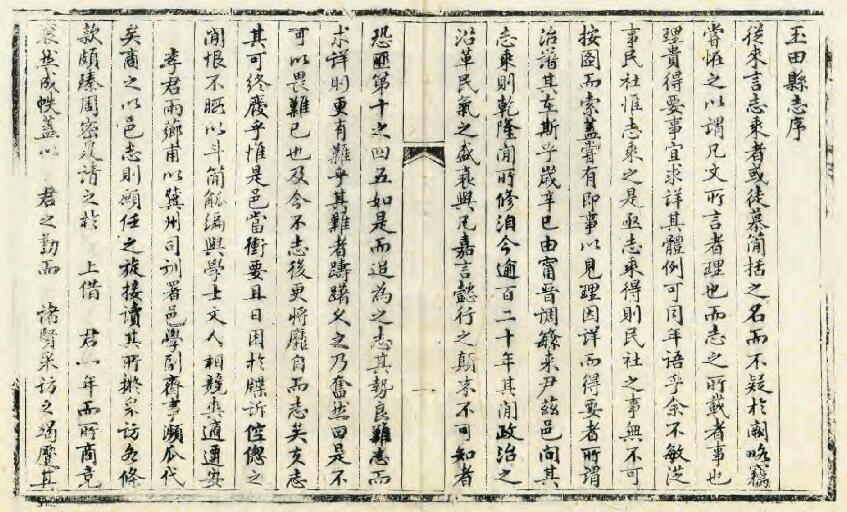 玉田縣志序
從來言志乘者或徒慕簡括之名而不疑於闕略竊
嘗惟之以謂凡文所言者理也而志之所載者事也
理貴得要事宜求詳其體例可同年語乎余不敏從
事民社惟志乘之是亟志乘得則民社之事無不可
按圖而索蓋嘗有即事以見理因詳而得要者所謂
治譜其在斯乎歲辛巳由甯晉調繁來尹茲邑問其
志乘則乾隆間所修洎今逾百二十年其間政治之
沿革民氣之盛衰與凡嘉言懿行之顛末不可知者
恐匪第十之四五如是而追為之志其勢良難志而
求詳則更有難乎其難者躊躇久之乃奮然曰是不
可以畏難已也及今不志後更將靡自而志矣夫志
其可終廢乎惟是邑當衝要且日困於牒訴倥傯之
間恨不暇以斗筲觚編與學士文人相競爽適遷安
李君雨薌甫以冀州司訓署邑學副齋事瀕瓜代
矣商之以邑志則願任之旋接讀其所擬采訪各條
款頗臻周密爰請之於　上借　君一年而所商竟
裒然成帙蓋以　君之勤而　諸賢采訪之竭靡其